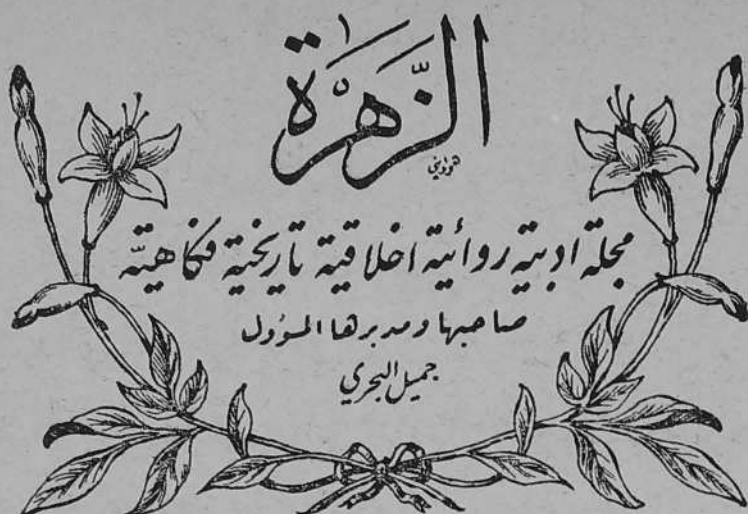 الزَّهرَة
هواويني
مجلة ادبية روائية اخلاقية تاريخية فكاهيّة
صاحبها ومديرها المسؤول
جميل البحري